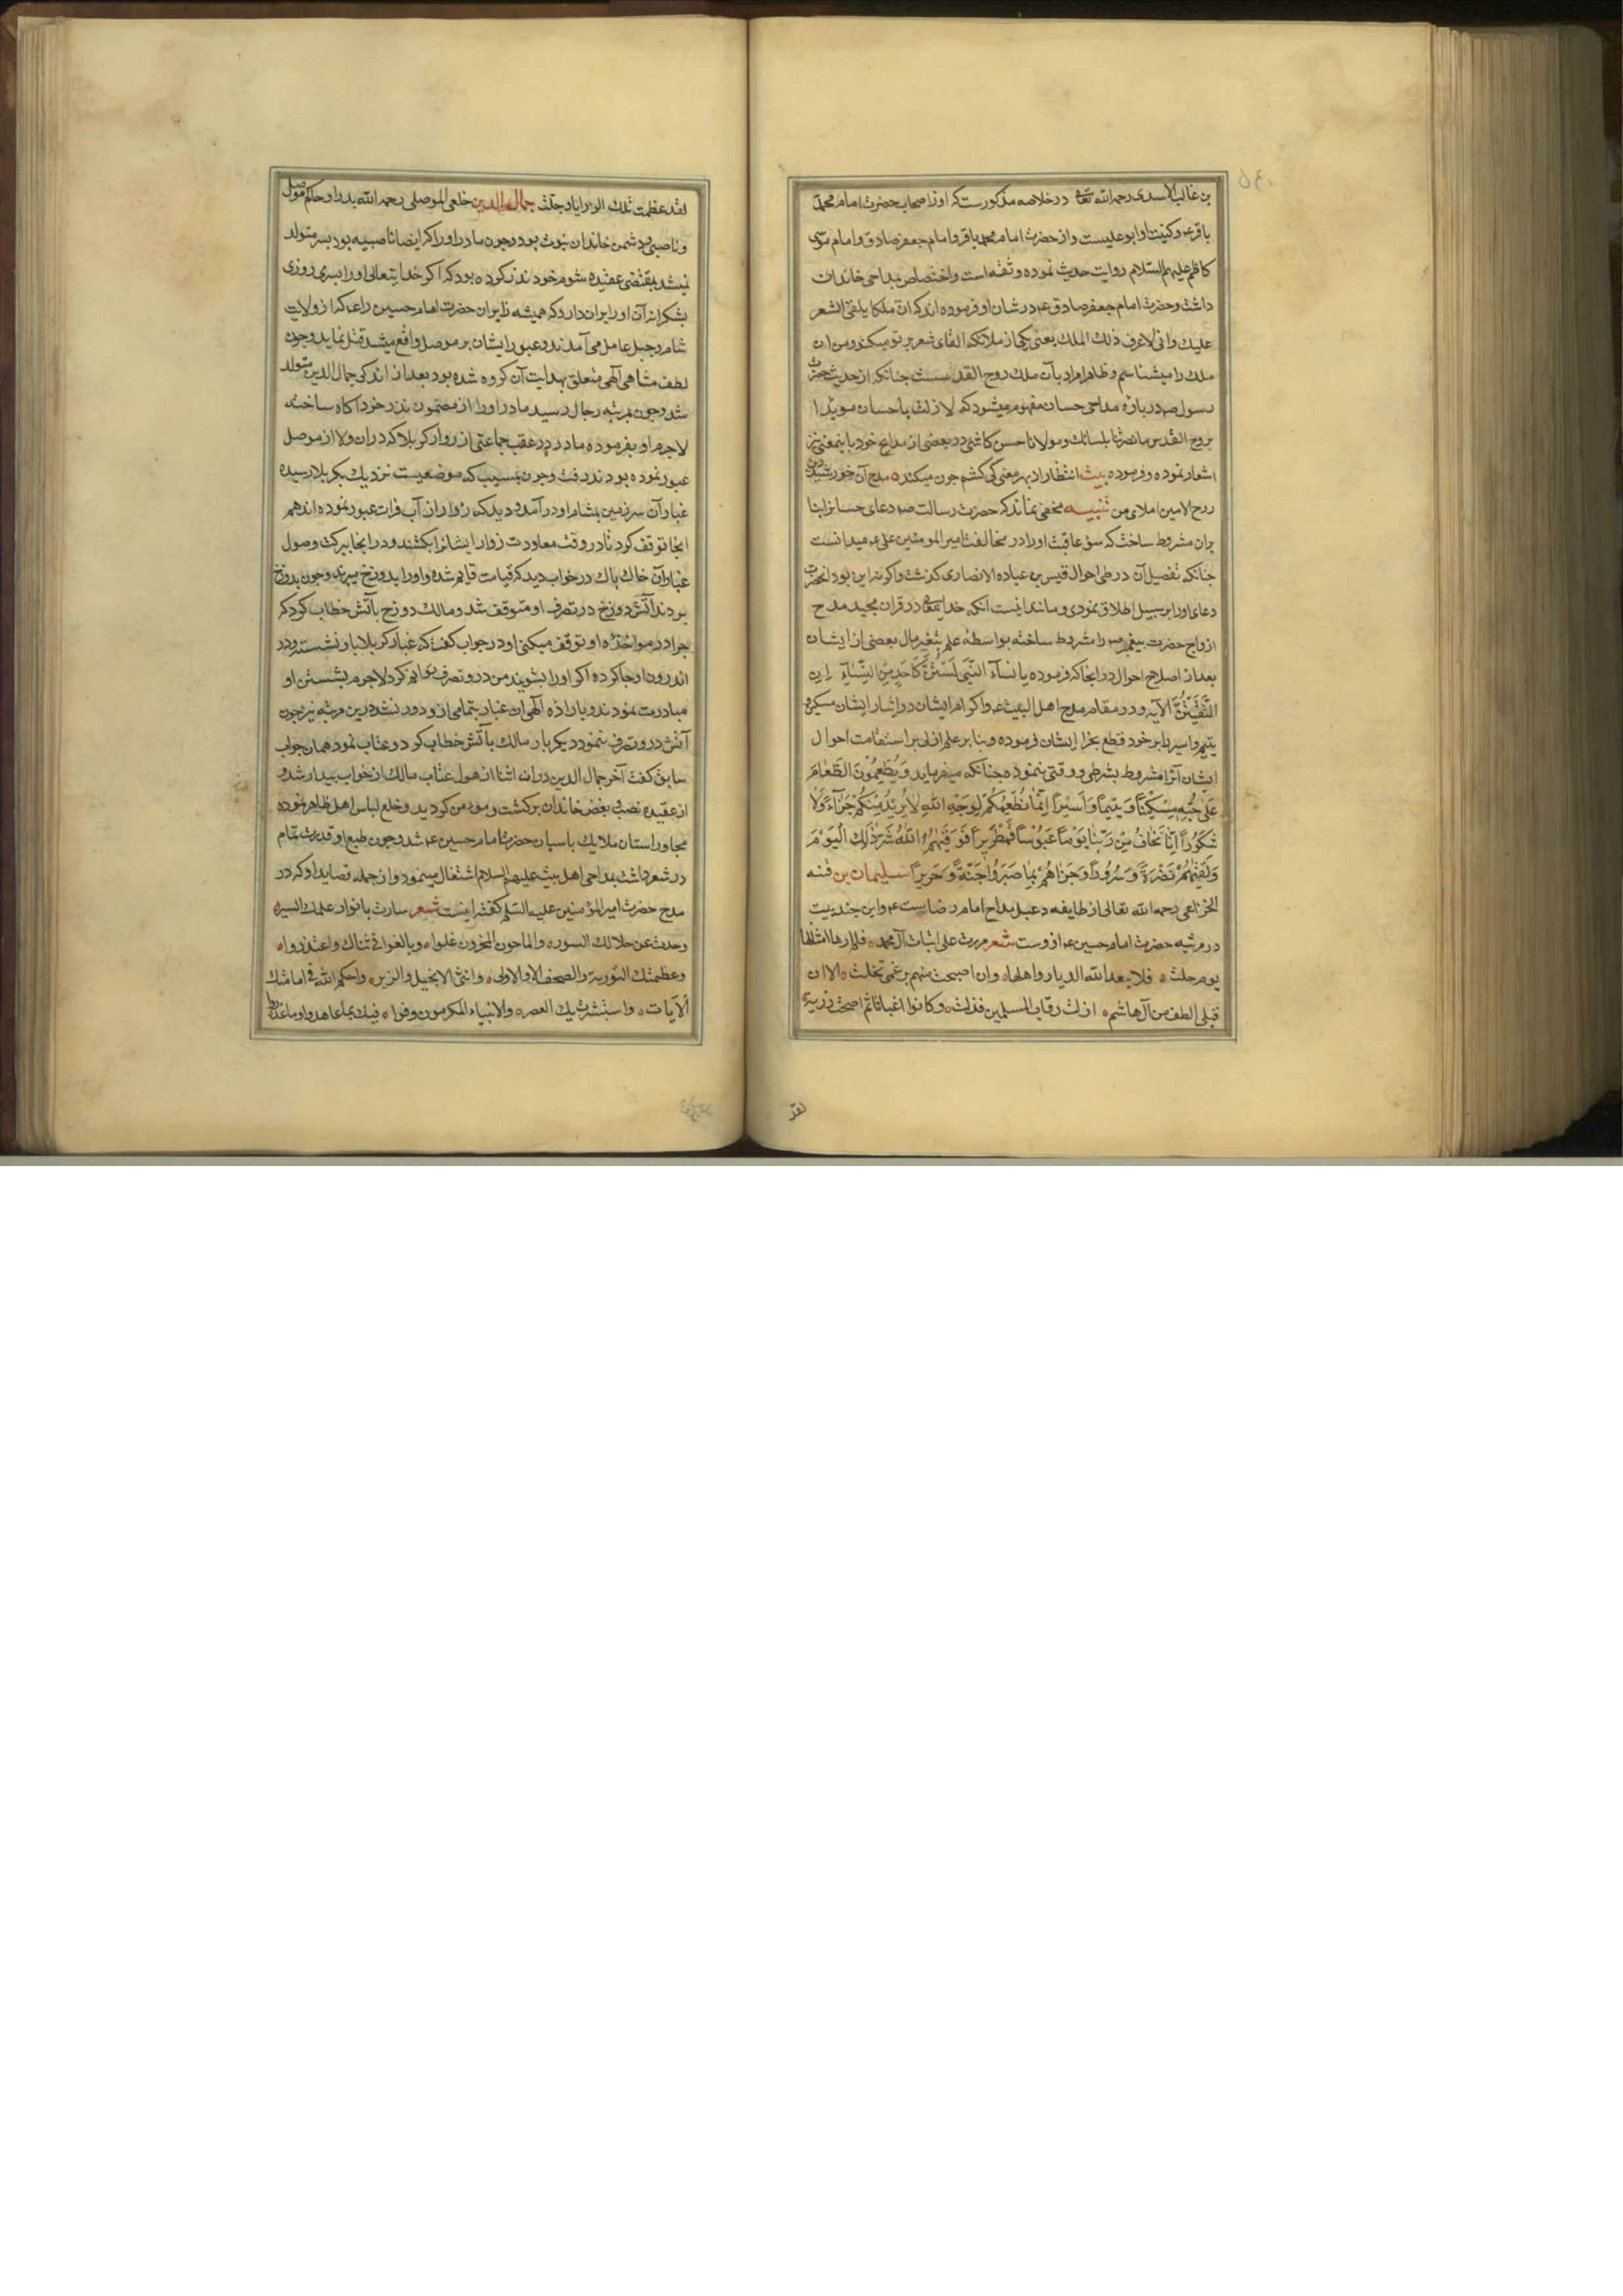 بن غالب الاسدی رحمه الله تعا در خلاصه مذکورست که او از اصحاب حضرت امام محمد
باقر ع و کنیت او ابو علیست و از حضرت امام محمد باقر و امام جعفر صادق و امام موسی
کاظم علیهم السلام روایت حدیث نموده و ثقه است و اختصاص بمداحی خاندان
داشت و حضرت امام جعفر صادق ع در شان او فرموده اند که ان ملکا یلقی الشعر
علیک و انی لاعرف ذلک الملک یعنی یکی از ملائکه القای شعر بر تو میکند و من ان
ملک را میشناسم و ظاهرا مراد بآن ملک روح القدسست جنانکه از حدیث حضرت
رسول ص در باره مداحی حسان مفهوم میشود که لازلت یا حسان مویدا
بروح القدس ما نصرتنا بلسانک و مولانا حسن کاشی در بعضی از مدایح خود باینمعنی نیز
اشعار نموده و فرموده بیت انتظار از بهر معنی کی کشم جون میکند ٥ مدح آن خورشید دین
روح الامین املای من تنبیه مخفی نماند که حضرت رسالت ص دعای حسانرا بنا
بران مشروط ساخت که سؤ عاقبت او را در مخالفت امیر المومنین علی ع میدانست
جنانکه تفصیل آن در طی احوال قیس بن عباده الانصاری کذشت و اکر نه این بود انحضرت
دعای اورا بر سبیل اطلاق نمودی و مانند اینست انکه خدایتعا در قران مجید مدح
ازواج حضرت پیغمبر ص را مشروط ساخته بواسطه علم بتغیر مال بعضی از ایشان
بعد از اصلاح احوال در انجا که فرموده یا نسآء النبی لستن کاحد من النسآء ان
اتقیتن الآیه و در مقام مدح اهل البیت ع و اکرام ایشان در ایثار ایشان مسکین و
یتیم و اسیر را بر خود قطع بخرا ایشان فرموده و بنا بر علم ازلی بر استقامت احوال
ایشان آنرا مشروط بشرطی و وقتی ننموده جنانکه میفرماید وَیُطْعِمُونَ الطَّعامَ
عَلی حُبِّهِ مِسْکِیْناً وَیَتِیْماً وَاَسِیْراً اِنَّما نُطْعِمُکُمْ لِوَجْهِ اللهِ لا نُرِیْدُ مِنْکُمْ جَزآءً وَلا
شُکُوْراً اِنّا نَخافُ مِنْ رَبِّنا یَوْماً عَبُوْساً قَمْطَرِیْراً فَوَقٰیهُمُ اللهُ شَرَّ ذٰلِکَ الْیَوْمَ
وَلَقّٰیهُمْ نَضْرَةً وَسُرُوْراً وَجَزاهُمْ بِما صَبَرُوْا جَنَّةً وَحَرِیْراً سلیمان بن قته
الخزاعی رحمه الله تعالی از طایفه دعبل مداح امام رضاست ع و این جند بیت
در مرثیه حضرت امام حسین ع از وست شعر مررت علی ابیات آل محمد ٥ فلم ارها امثالها
یوم حلت ٥ فلا یبعد الله الدیار و اهلها ٥ وان اصبحت منهم برغمی تخلت ٥ الا ان
قتلی الطف من آل هاشم ٥ اذلت رقاب المسلمین فذلت ٥ وکانوا غیاثا ثم اضحت رزیة
لقد
لقد عظمت تلک الرزایا و جلت جمال الدین خلعی الموصلی رحمه الله پدر او حاکم موصل
و ناصبی و دشمن خاندان نبوت بود و جون مادر او را که ایضا ناصبیه بود پسر متولد
نمیشد بمقتضی عقیده شوم خود نذر کرده بود که اکر خدایتعالی او را پسری روزی
بشکرانه آن او را بران دارد که همیشه زایران حضرت امام حسین را ع که از ولایت
شام و جبل عامل می آمدند و عبور ایشان بر موصل واقع میشد قتل نماید و جون
لطف متناهی آلهی متعلق بهدایت آن کروه شده بود بعد از اندکی جمال الدین متولد
شد و جون بمرتبه رجال رسید مادر او را از مضمون نذر خود اکاه ساخت
لاجرم او بفرموده مادر در عقب جماعتی از زوار کربلا که دران ولا از موصل
عبور نموده بودند رفت و جون بمسیب که موضعیست نزدیک بکربلا رسیده
غبار آن سرزمین بمشام او درآمد و دید که زوار از آب فرات عبور نموده اند هم
انجا توقف کرد تا در وقت معاودت زوار ایشانرا بکشد و در انجا ببرکت وصول
غبار آن خاک پاک در خواب دید که قیامت قایم شده و او را بدوزخ میبرند و جون بدوزخ
بردند آتش دوزخ در تصرف او متوقف شد و مالک دوزخ بآتش خطاب کرد که
جرا در مواخذه او توقف میکنی او در جواب کفت که غبار کربلا بار نشسته و در
اندرون او جا کرده اکر او را بشویند من درو تصرف توانم کرد لاجرم بشستن او
مبادرت نمودند و باراده آلهی آن غبار بتمامی ازو دور نشد درین مرتبه نیز جون
آتش درو تصرف ننمود دیکر بار مالک بآتش خطاب کرد و عتاب نمود همان جواب
سابق کفت آخر جمال الدین دران اثنا از هول عتاب مالک از خواب بیدار شد و
از عقیده نصب و بغض خاندان برکشت و مومن کردید و خلع لباس اهل ظاهر نموده
مجاور استان ملایک پاسبان حضرت امام حسین ع شد و جون طبع او قدرت تمام
در شعر داشت بمداحی اهل بیت علیهم السلام اشتغال مینمود و از جمله قصاید او که در
مدح حضرت امیر المؤمنین علیه السلم کفته اینست شعر سارت بانوار علمک السیر ٥
وحدث عن جلالک السور ٥ والمادحون المخبرون غلوا ٥ وبالغوا فی ثناک واعتذروا ٥
وعظمتک التوریة والصحف الاولی ٥ واثنی الانجیل والزبر ٥ واحکم الله فی امامتک
الآیات ٥ واستبشرت بک العصر ٥ والانبیاء المکرمون وفوا ٥ فیک بما عاهدوا وما غدروا